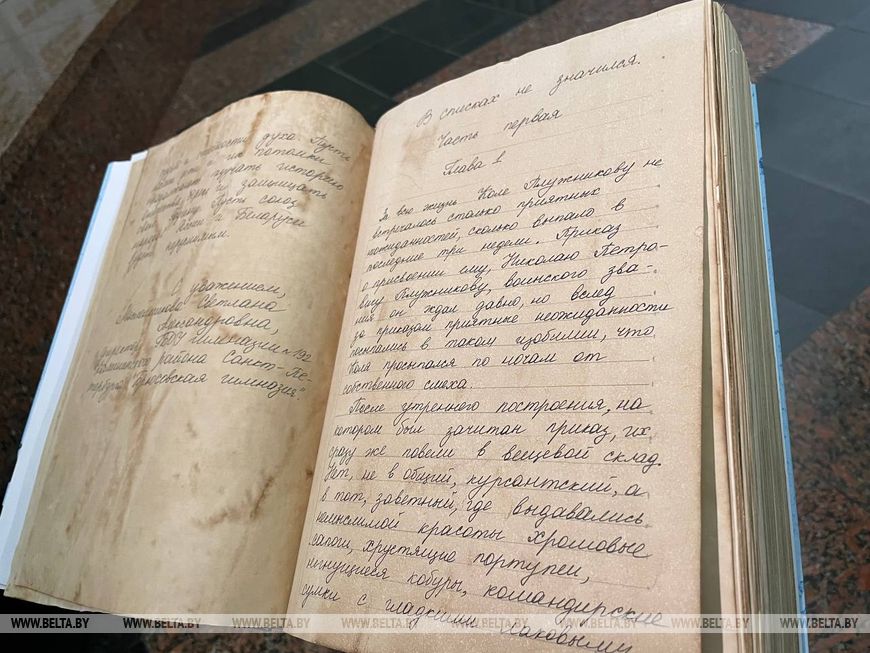 духа. Пусть
и их потомки
изучать историю
защищать
свою Пусть союз
и Беларуси
будет
С уважением,
Светлана
Александровна,
директор гимназии №192
района Санкт-Пе-
тербурга "Брюсовская гимназия".
В списках не значился.
Часть первая
Глава 1
За всю жизнь Коле Плужникову не
встречалось столько приятных
неожиданностей, сколько выпало в
последние три недели. Приказ
о присвоении ему, Николаю Петро-
вичу Плужникову, воинского зва-
ния он ждал давно, но вслед
за приказом приятные неожиданности
посыпались в таком изобилии, что
Коля просыпался по ночам от
собственного смеха.
После утреннего построения, на
котором был зачитан приказ, их
сразу же повели в вещевой склад.
Нет, не в общий, курсантский, а
в тот, заветный, где выдавались
немыслимой красоты хромовые
сапоги, хрустящие портупеи,
негнущиеся кобуры, командирские
сумки с гладкими лаковыми
WWW.BELTA.BY WWW.BELTA.BY WWW.BELTA.BY WWW.BELTA.BY WWW.BELTA.BY WWW.BELTA.BY WWW.BELTA.BY WWW.BELTA.BY